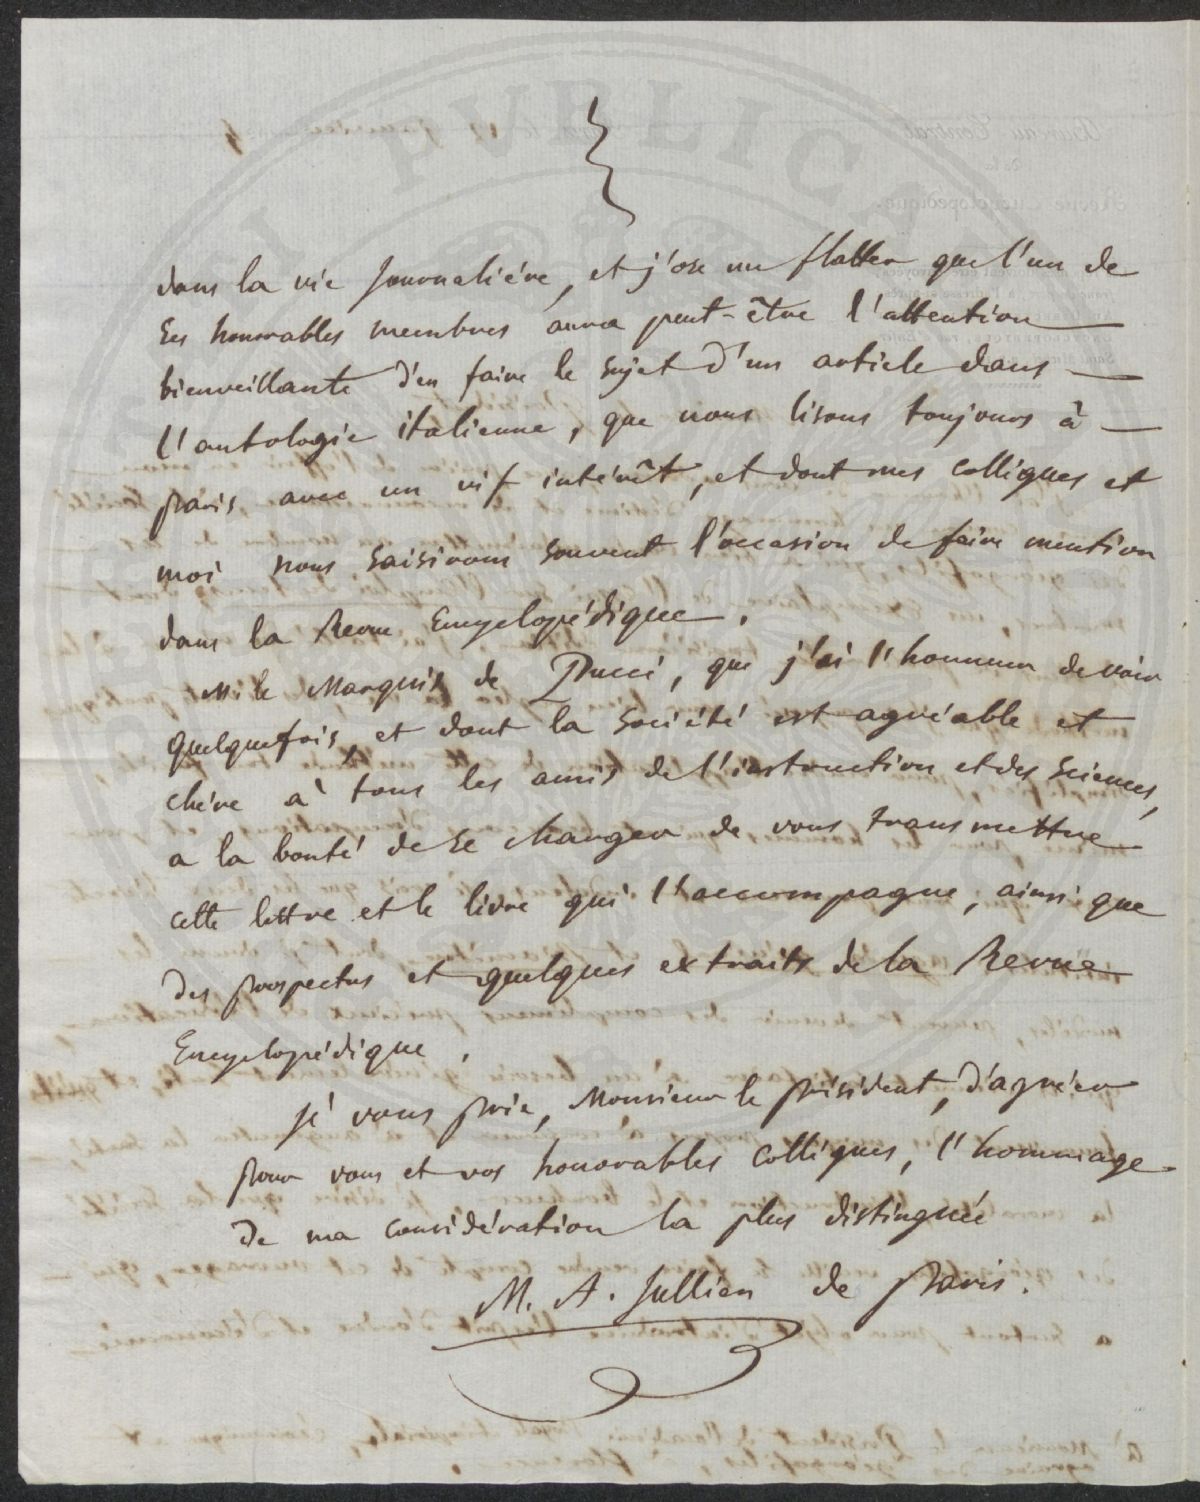 dans la vie journaliére, et j'ose me flatter que l'un de
ses honorables membres aura peut-être l'attention
bienveillante d'en faire le sujet d'un article dans
l'antologie italienne, que nous lisons toujours à
paris avec un vif intérêt, et dont mes collégues et
moi nous saisirons souvent l'occasion de faire mention
dans la Revue Encyclopédique.
M. le Marquis de Pucci, que j'ai l'honneur de voir
quelquefois, et dont la société est agréable et
chére à tous les amis de l'instruction et des sciences,
a la bonté de se charger de vous transmettre
cette lettre et le livre qui l'accompagne, ainsi que
des prospectus et quelques extraits de la Revue
Encyclopédique.
Je vous prie, Monsieur le président, d'agréer
pour vous et vos honorables collégues, l'hommage
de ma considération la plus distinguée
M. A. Jullien de Paris.